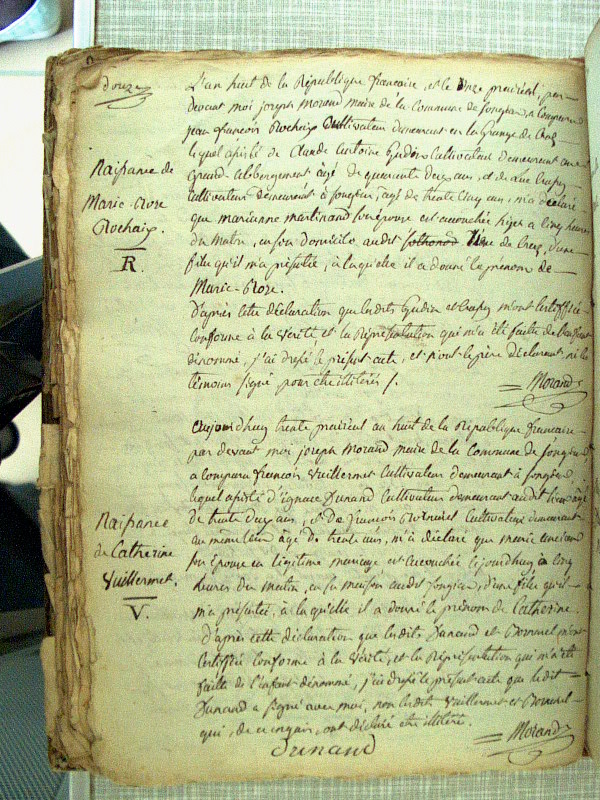 douze
L'an huit de la République francaise, et le onze prairial, par
devant moi joseph Morand Maire de la Commune de Jongieux, a comparu
jean francois Rochaix Cultivateur demeurant en la Grange de
lequel assisté de Claude antoine Cultivateur demeurant au
Grand albergement âgé de quarante deux ans, et de
Cultivateur demeurant à Jongieux, âgé de trente cinq ans, m'a déclaré
que marianne martinand son épouse est accouchée hyer a cinq heures
du Matin, en son domicile audit lieu de d'une
fille qu'il m'a présentée, à laquelle il a donné le prénom de
Marie-Roze.
Naissance de
Marie-Roze
Rochaix.
R.
D'après cette déclaration que lesdits et m'ont certiffiée
conforme à la vérité, et la Représentation qui m'a été faitte de l'enfant
dénommé, j'ai dressé le présent acte, et n'ont le père déclarant ni les
témoins signé pour être illiterés /.
Morand
Aujourdhuy trente prairial an huit de la République francaise
par devant moi joseph Morand maire de la Commune de Jongieux
a comparu francois Vuillermet Cultivateur demeurant à Jongieux
lequel assisté d'ignace Dunand Cultivateur demeurant audit lieu âgé
de trente deux ans, et de francois Cultivateur demeurant
au meme lieu âgé de trente ans, m'a déclaré que marie
son Epouse en légitime mariage est accouchée cejourdhuy à cinq
heures du matin, en sa maison audit Jongieux, d'une fille qu'il
m'a présentée, à laquelle il a donné le prénom de Catherine.
Naissance
de Catherine
Vuillermet.
V.
D'après cette déclaration que lesdits Dunand et m'ont
certiffiée conforme à la Vérité, et la Représentation qui m'a été
faitte de l'enfant dénommé, j'ai dressé le présent acte que ledit
Dunand a signé avec moi, non lesdits Vuillermet et
qui, de ce enquis, ont déclaré être illiterés.
Dunand
Morand